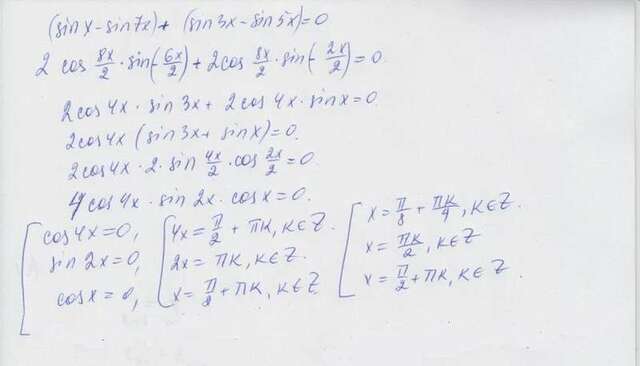 (sin x - sin 7x) + (sin 3x - sin 5x) = 0
2 cos 8x/2 · sin(-6x/2) + 2 cos 8x/2 · sin(-2x/2) = 0.
2 cos 4x · sin 3x + 2 cos 4x · sin x = 0.
2 cos 4x (sin 3x + sin x) = 0.
2 cos 4x · 2 · sin 4x/2 · cos 2x/2 = 0.
4 cos 4x · sin 2x · cos x = 0.
[ cos 4x = 0, [ 4x = π/2 + πk, k∈Z. [ x = π/8 + πk/4, k∈Z.
sin 2x = 0, 2x = πk, k∈Z. x = πk/2, k∈Z
cos x = 0, x = π/2 + πk, k∈Z. x = π/2 + πk, k∈Z.